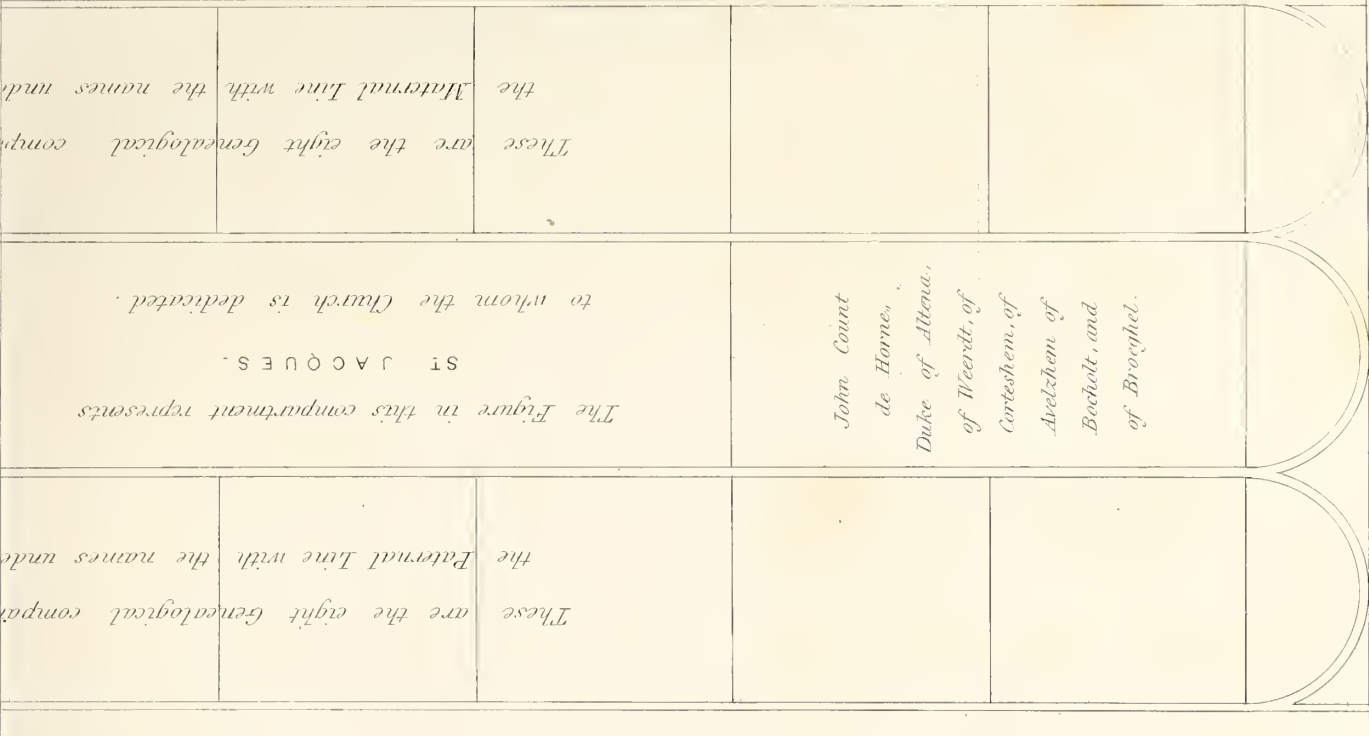 These are the eight Genealogical compa
the Paternal Line with the names unde
The Figure in this compartment represents
ST JACQUES.
to whom the Church is dedicated.
These are the eight Genealogical compa
the Maternal Line with the names und
John Count
de Horne,
Duke of Altena,
of Weerdt, of
Corteshem, of
Avelzhem of
Bocholt, and
of Broeghel.